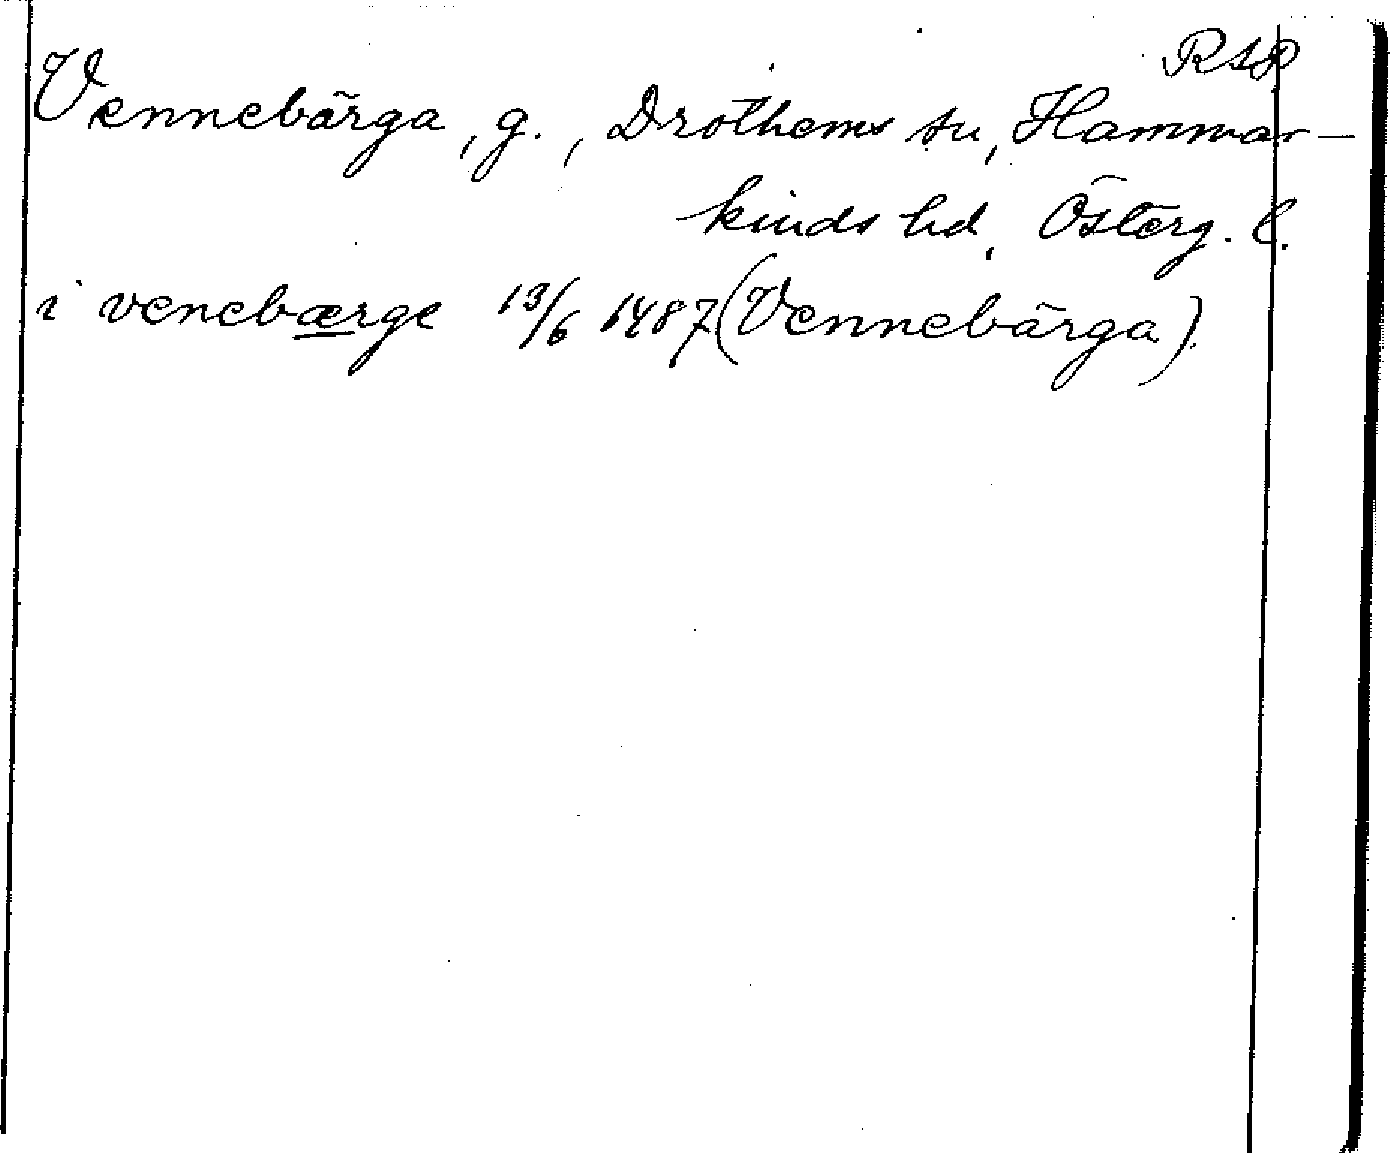 RAP
Vennebärga, g., Drothems sn, Hammar-
kinds hd, Österg. l.
i venebærge 13/6 1487 (Vennebärga).